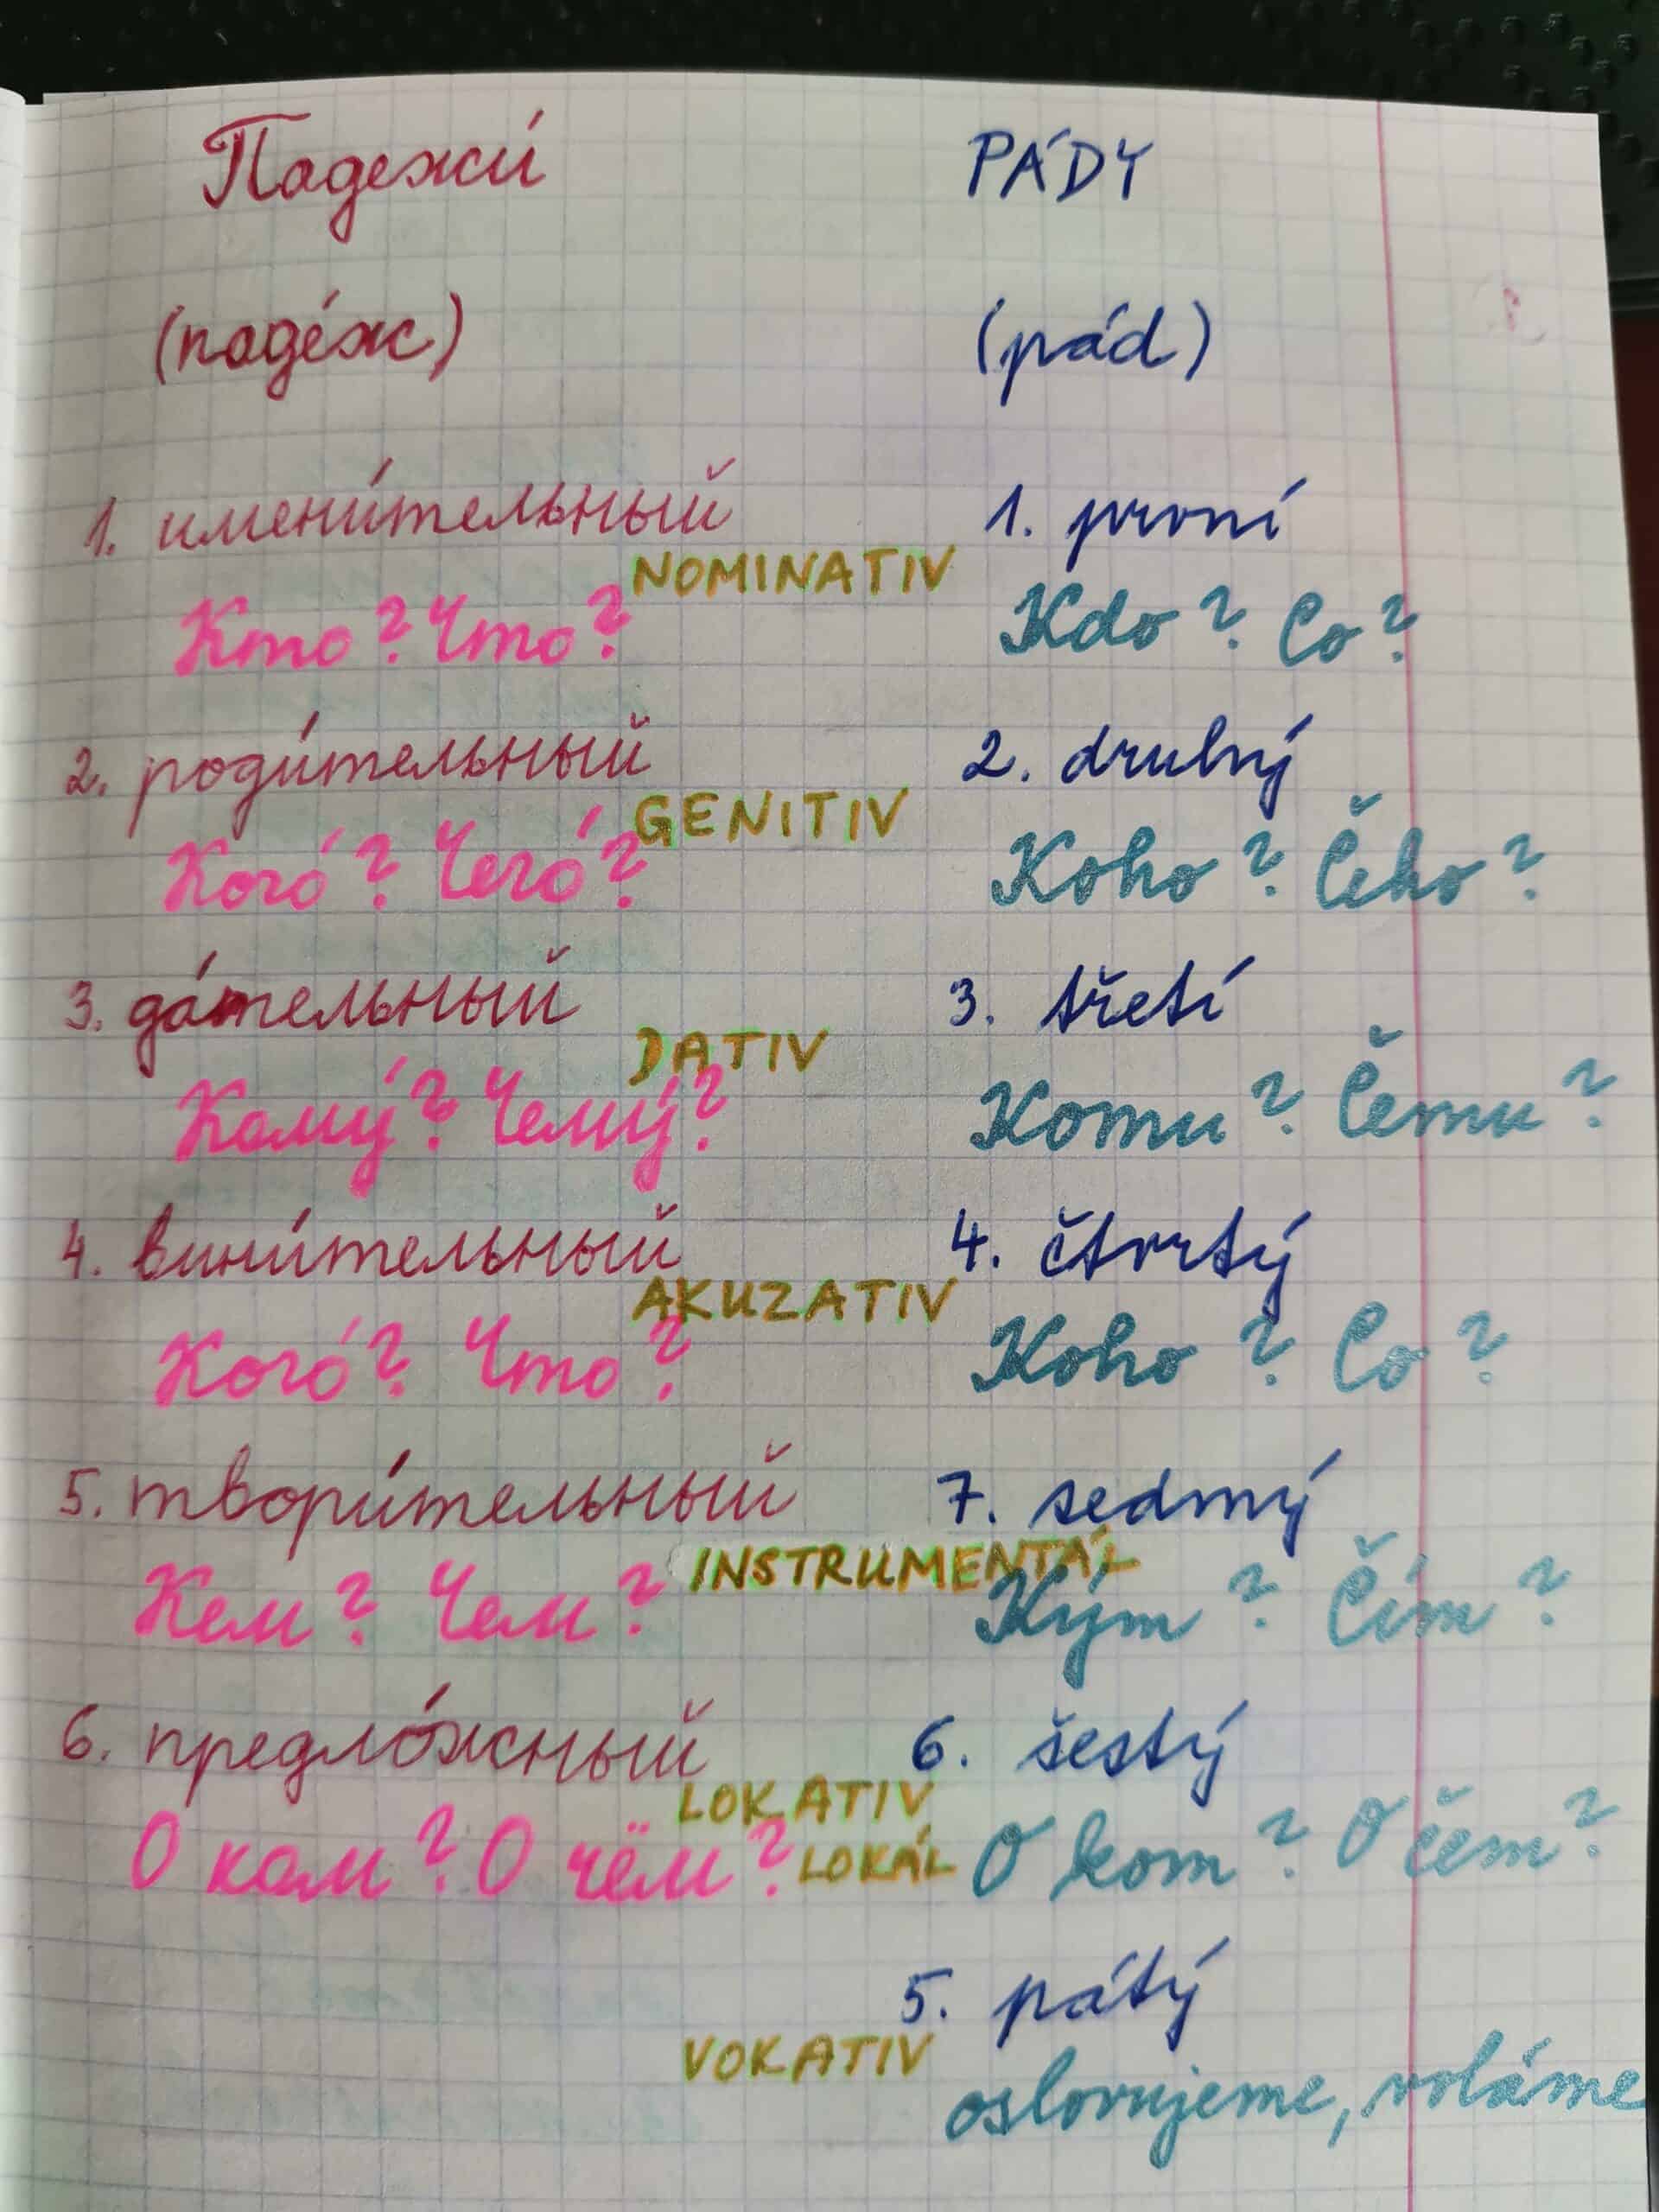 Падежи́ PÁDY
(паде́ж) (pád)
1. имени́тельный 1. první
NOMINATIV
Кто? Что? Kdo? Co?
2. роди́тельный 2. druhý
GENITIV
Кого́? Чего́? Koho? Čeho?
3. да́тельный 3. třetí
DATIV
Кому́? Чему́? Komu? Čemu?
4. вини́тельный 4. čtvrtý
AKUZATIV
Кого́? Что? Koho? Co?
5. твори́тельный 7. sedmý
INSTRUMENTÁL
Кем? Чем? Kým? Čím?
6. предло́жный 6. šestý
LOKATIV
О ком? О чём? LOKÁL O kom? O čem?
5. pátý
VOKATIV
oslovujeme, voláme